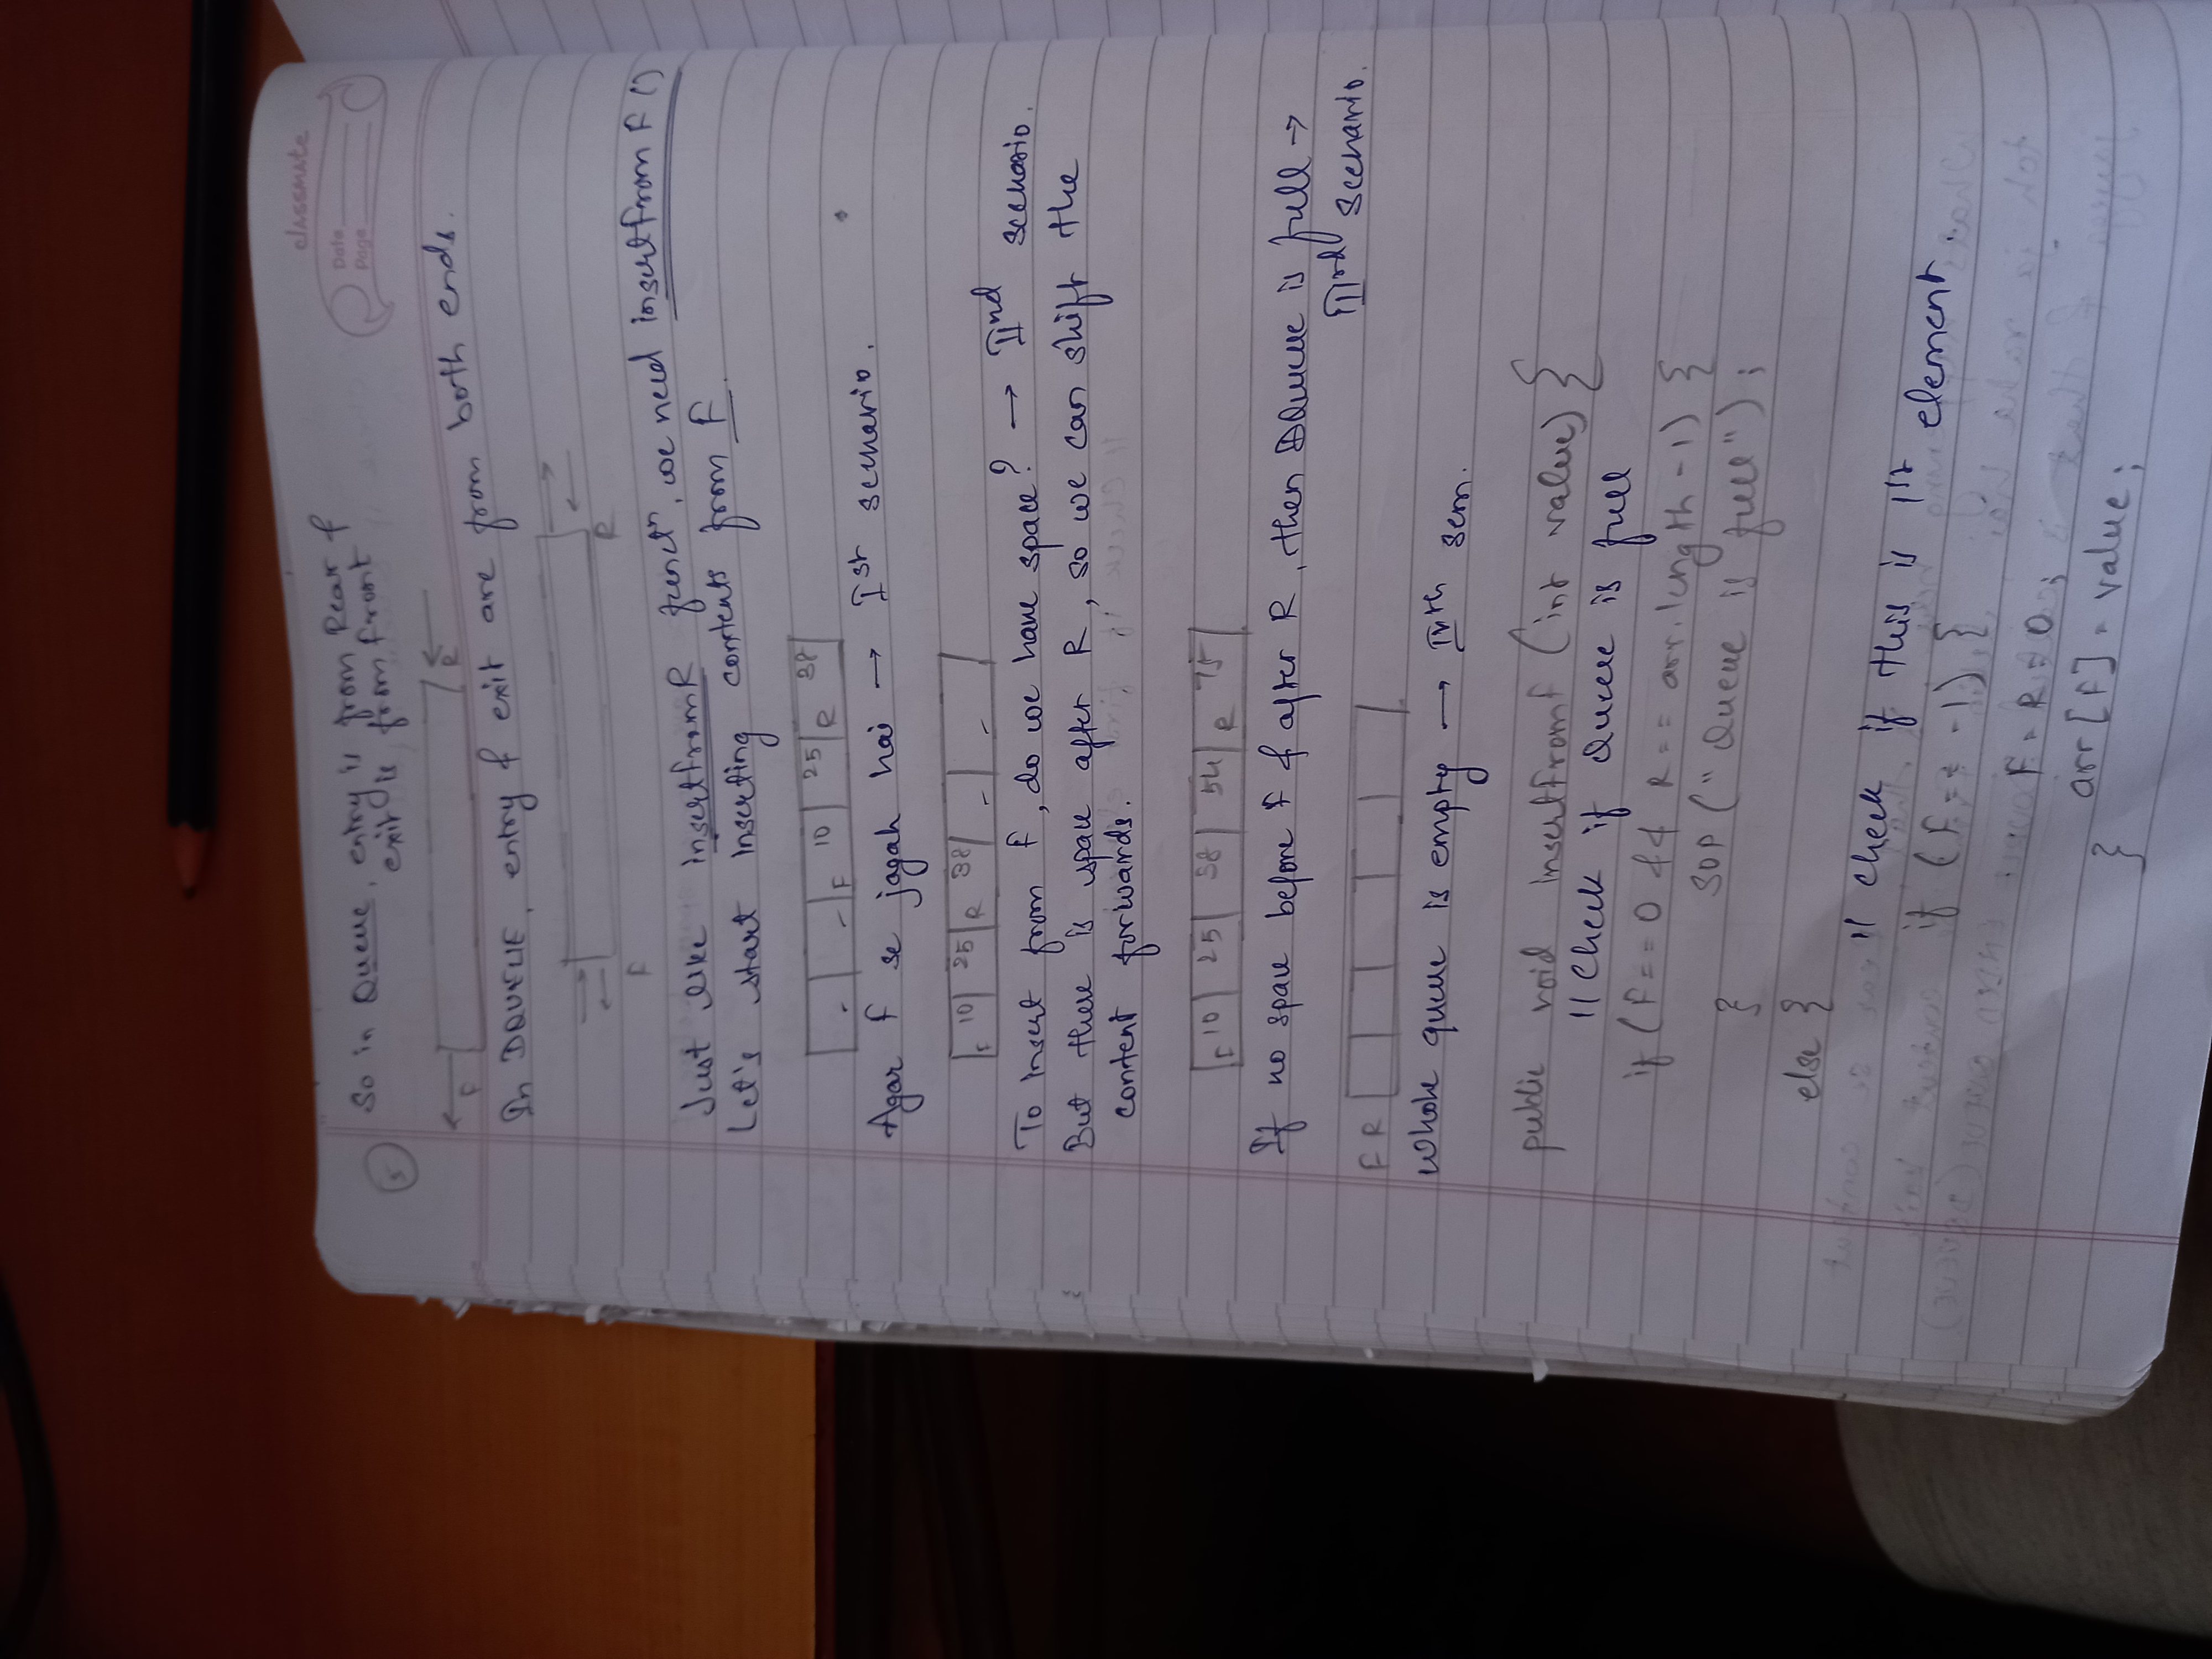 classmate
Date
Page
5
So in Queue, entry is from Rear &
exit is from front
F R
In DQUEUE, entry & exit are from both ends.
F R
Just like insertfromR functn, we need insertfrom F ()
Let's start inserting contents from F.
- - F 10 25 R 38
Agar F se jagah hai → Ist scenario.
F 10 25 R 38 - -
To insert from F, do we have space? → IInd scenario.
But there is space after R, so we can shift the
content forwards.
F 10 25 38 54 R 75
If no space before F & after R, then DQueue is full →
IIIrd scenario.
F R
Whole queue is empty → IVth scen.
public void insertfromf (int value) {
// Check if Queue is full
if (F==0 && R== arr.length-1) {
SOP (" Queue is full");
}
else {
// check if this is 1st element.
if (F== -1) {
F = R = 0;
arr [F] = value;
}